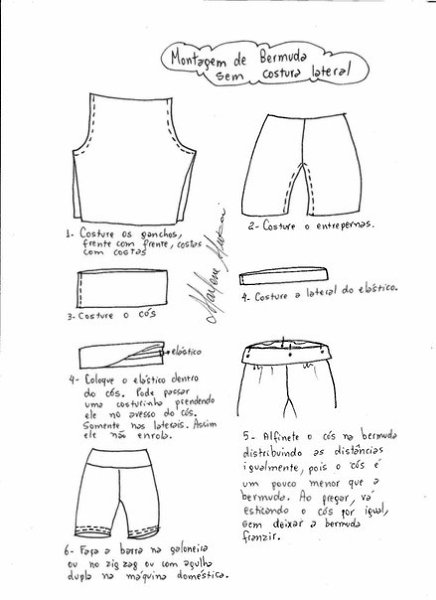 Montagem de Bermuda
sem costura lateral
1- Costure os ganchos,
frente com frente, costas
com costas
2- Costure o entrepernas.
3- Costure o cós
4- Costure a lateral do elástico.
elástico
4- Coloque o elástico dentro
do cós. Pode passar
uma costurinha prendendo
ele no avesso do cós.
Somente nas laterais. Assim
ele não enrola.
5- Alfinete o cós na bermuda
distribuindo as distâncias
igualmente, pois o cós é
um pouco menor que a
bermuda. Ao pregar, vá
esticando o cós por igual,
sem deixar a bermuda
franzir.
6- Faça a barra na galoneira
ou no zigzag ou com agulha
dupla na máquina doméstica.